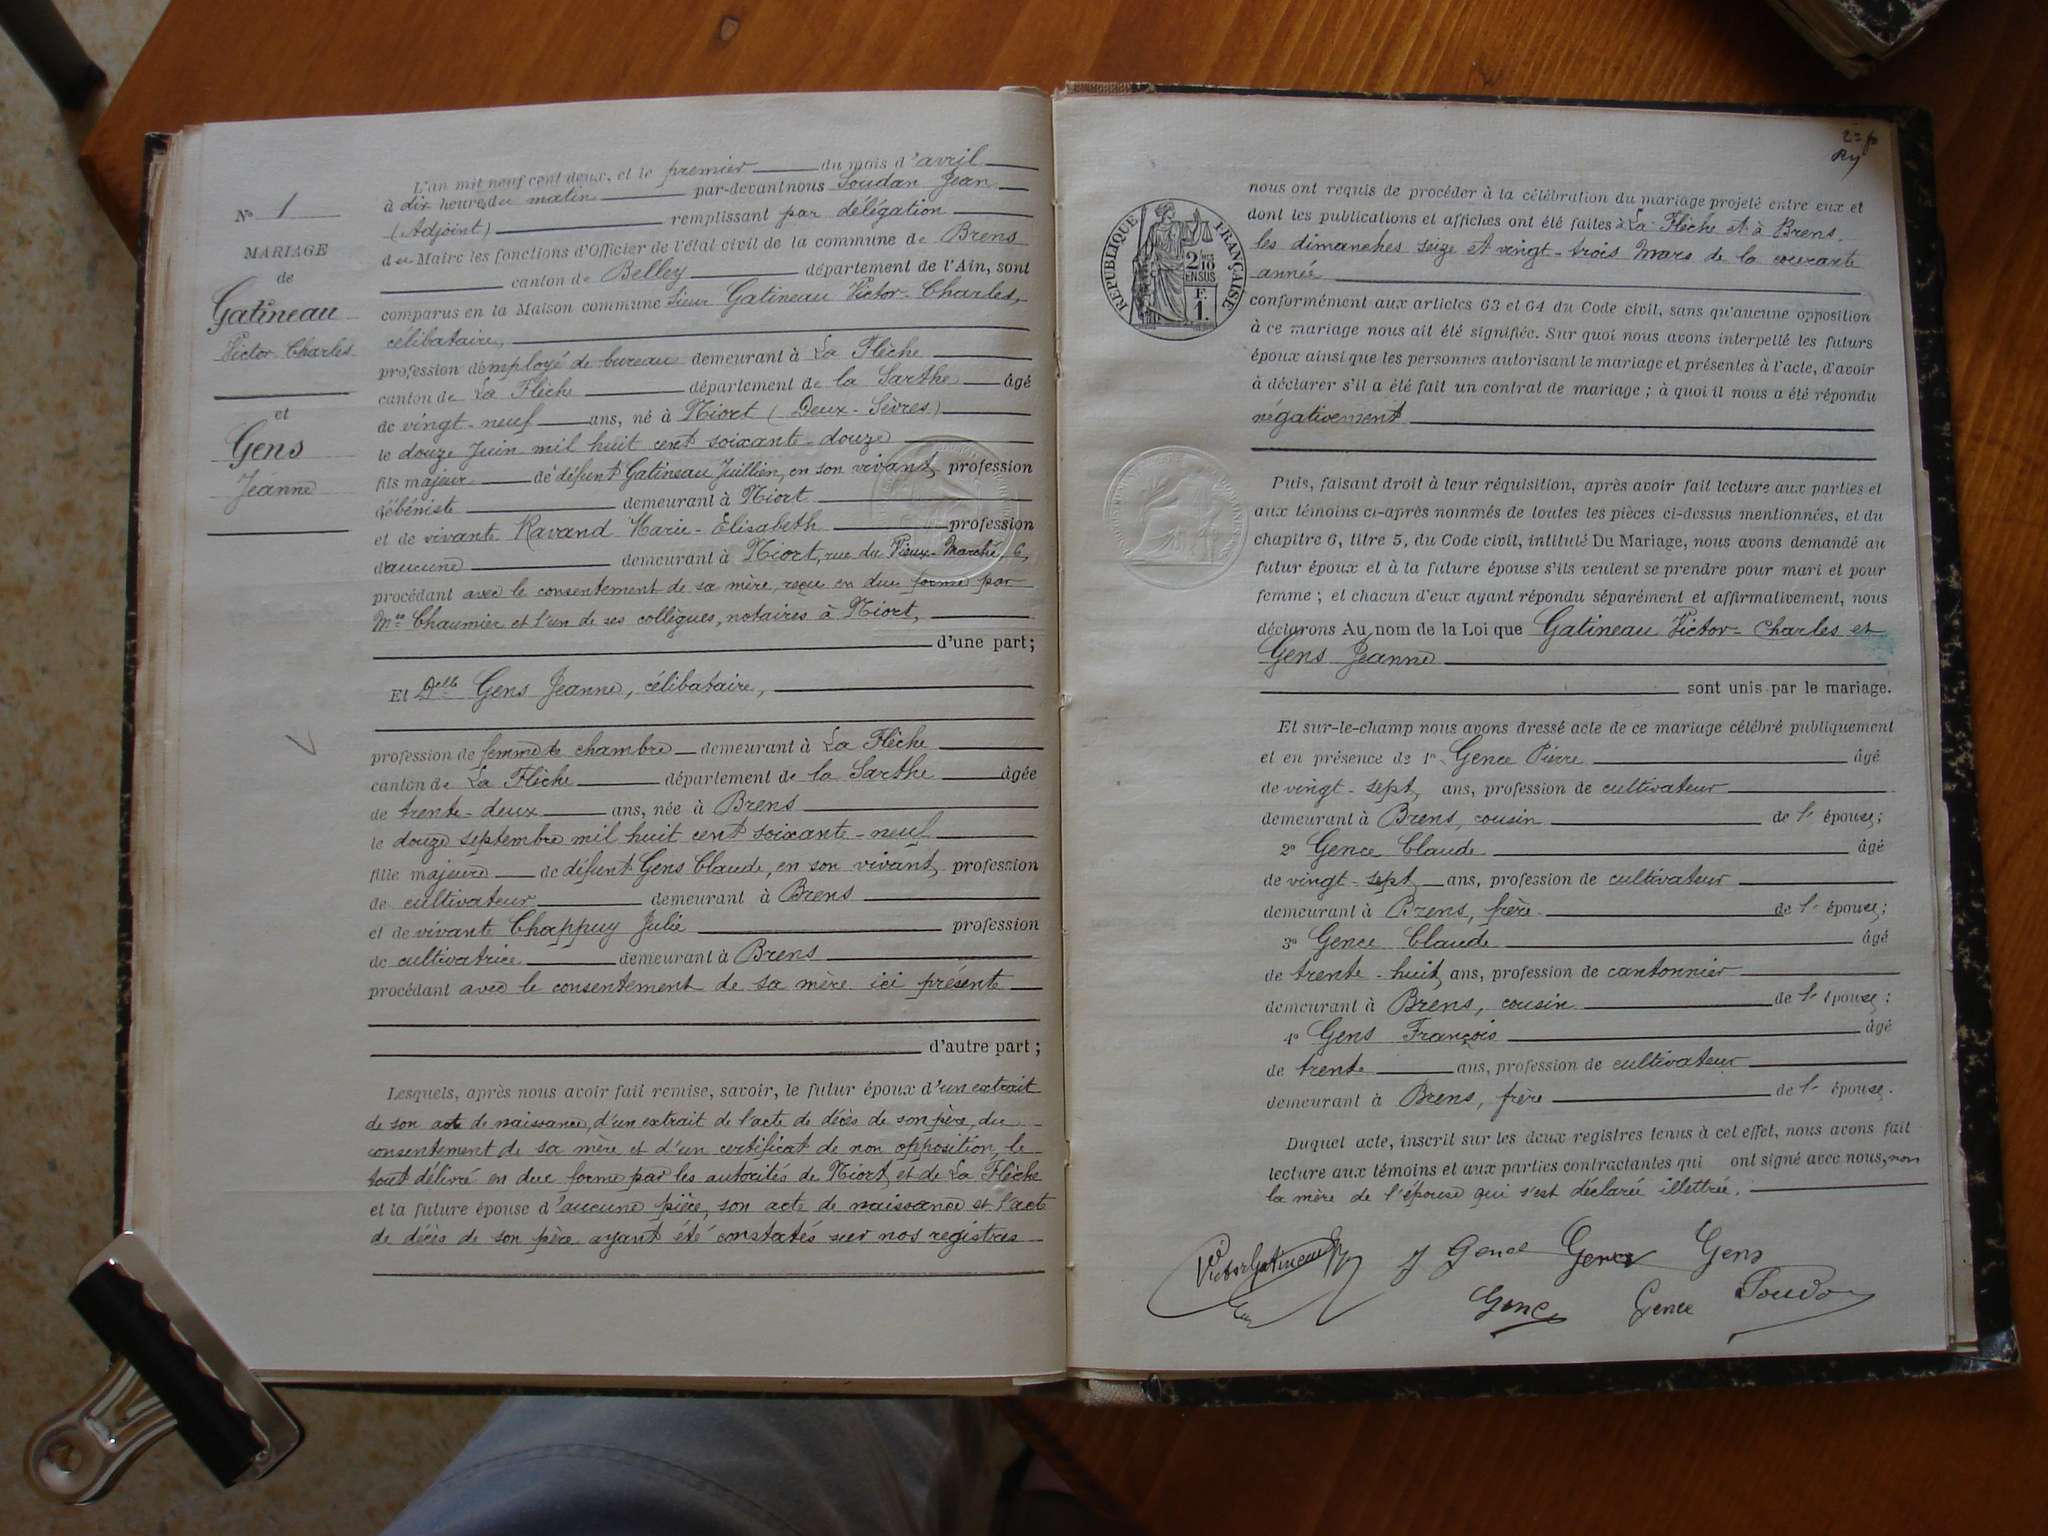 N° 1
MARIAGE
de
Gatineau
Victor Charles
et
Gens
Jeanne
L'an mil neuf cent deux, et le premier du mois d'avril
à dix heures du matin par-devant nous Soudan Jean
(Adjoint) remplissant par délégation
du Maire les fonctions d'Officier de l'état civil de la commune de Brens
canton de Belley département de l'Ain, sont
comparus en la Maison commune Sieur Gatineau Victor-Charles,
célibataire,
profession d'employé de bureau demeurant à La Flèche
canton de La Flèche département de la Sarthe âgé
de vingt-neuf ans, né à Niort (Deux-Sèvres)
le douze Juin mil huit cent soixante-douze
fils majeur de défunt Gatineau Juillien, en son vivant, profession
d'ébéniste demeurant à Niort
et de vivante Ravand Marie-Elisabeth profession
d'aucune demeurant à Niort, rue du Vieux-Marché, 6,
procédant avec le consentement de sa mère, reçu en due forme par
Me Chaumier et l'un de ses collègues, notaires à Niort,
d'une part;
Et Delle Gens Jeanne, célibataire,
profession de femme de chambre demeurant à La Flèche
canton de La Flèche département de la Sarthe âgée
de trente-deux ans, née à Brens
le douze septembre mil huit cent soixante-neuf
fille majeure de défunt Gens Claude, en son vivant, profession
de cultivateur demeurant à Brens
et de vivante Chappuy Julie profession
de cultivatrice demeurant à Brens
procédant avec le consentement de sa mère ici présente
d'autre part;
Lesquels, après nous avoir fait remise, savoir, le futur époux d'un extrait
de son acte de naissance, d'un extrait de l'acte de décès de son père, du
consentement de sa mère et d'un certificat de non opposition, le
tout délivré en due forme par les autorités de Niort et de La Flèche
et la future épouse d'aucune pièce, son acte de naissance et l'acte
de décès de son père ayant été constatés sur nos registres
RÉPUBLIQUE FRANÇAISE
2 10 EN SUS
F. 1.
nous ont requis de procéder à la célébration du mariage projeté entre eux et
dont les publications et affiches ont été faites à La Flèche et à Brens
les dimanches seize et vingt-trois Mars de la courante
année
conformément aux articles 63 et 64 du Code civil, sans qu'aucune opposition
à ce mariage nous ait été signifiée. Sur quoi nous avons interpellé les futurs
époux ainsi que les personnes autorisant le mariage et présentes à l'acte, d'avoir
à déclarer s'il a été fait un contrat de mariage; à quoi il nous a été répondu
négativement
Puis, faisant droit à leur réquisition, après avoir fait lecture aux parties et
aux témoins ci-après nommés de toutes les pièces ci-dessus mentionnées, et du
chapitre 6, titre 5, du Code civil, intitulé Du Mariage, nous avons demandé au
futur époux et à la future épouse s'ils veulent se prendre pour mari et pour
femme; et chacun d'eux ayant répondu séparément et affirmativement, nous
déclarons Au nom de la Loi que Gatineau Victor-Charles et
Gens Jeanne
sont unis par le mariage.
Et sur-le-champ nous avons dressé acte de ce mariage célébré publiquement
et en présence de 1° Gence Pierre âgé
de vingt-sept ans, profession de cultivateur
demeurant à Brens, cousin de l' épouse;
2° Gence Claude âgé
de vingt-sept ans, profession de cultivateur
demeurant à Brens, frère de l' épouse;
3° Gence Claude âgé
de trente-huit ans, profession de cantonnier
demeurant à Brens, cousin de l' épouse;
4° Gens François âgé
de trente ans, profession de cultivateur
demeurant à Brens, frère de l' épouse.
Duquel acte, inscrit sur les deux registres tenus à cet effet, nous avons fait
lecture aux témoins et aux parties contractantes qui ont signé avec nous, non
la mère de l'épouse qui s'est déclarée illettrée.
Victor Gatineau J Gence Gence Gens
Gence Gence Soudan